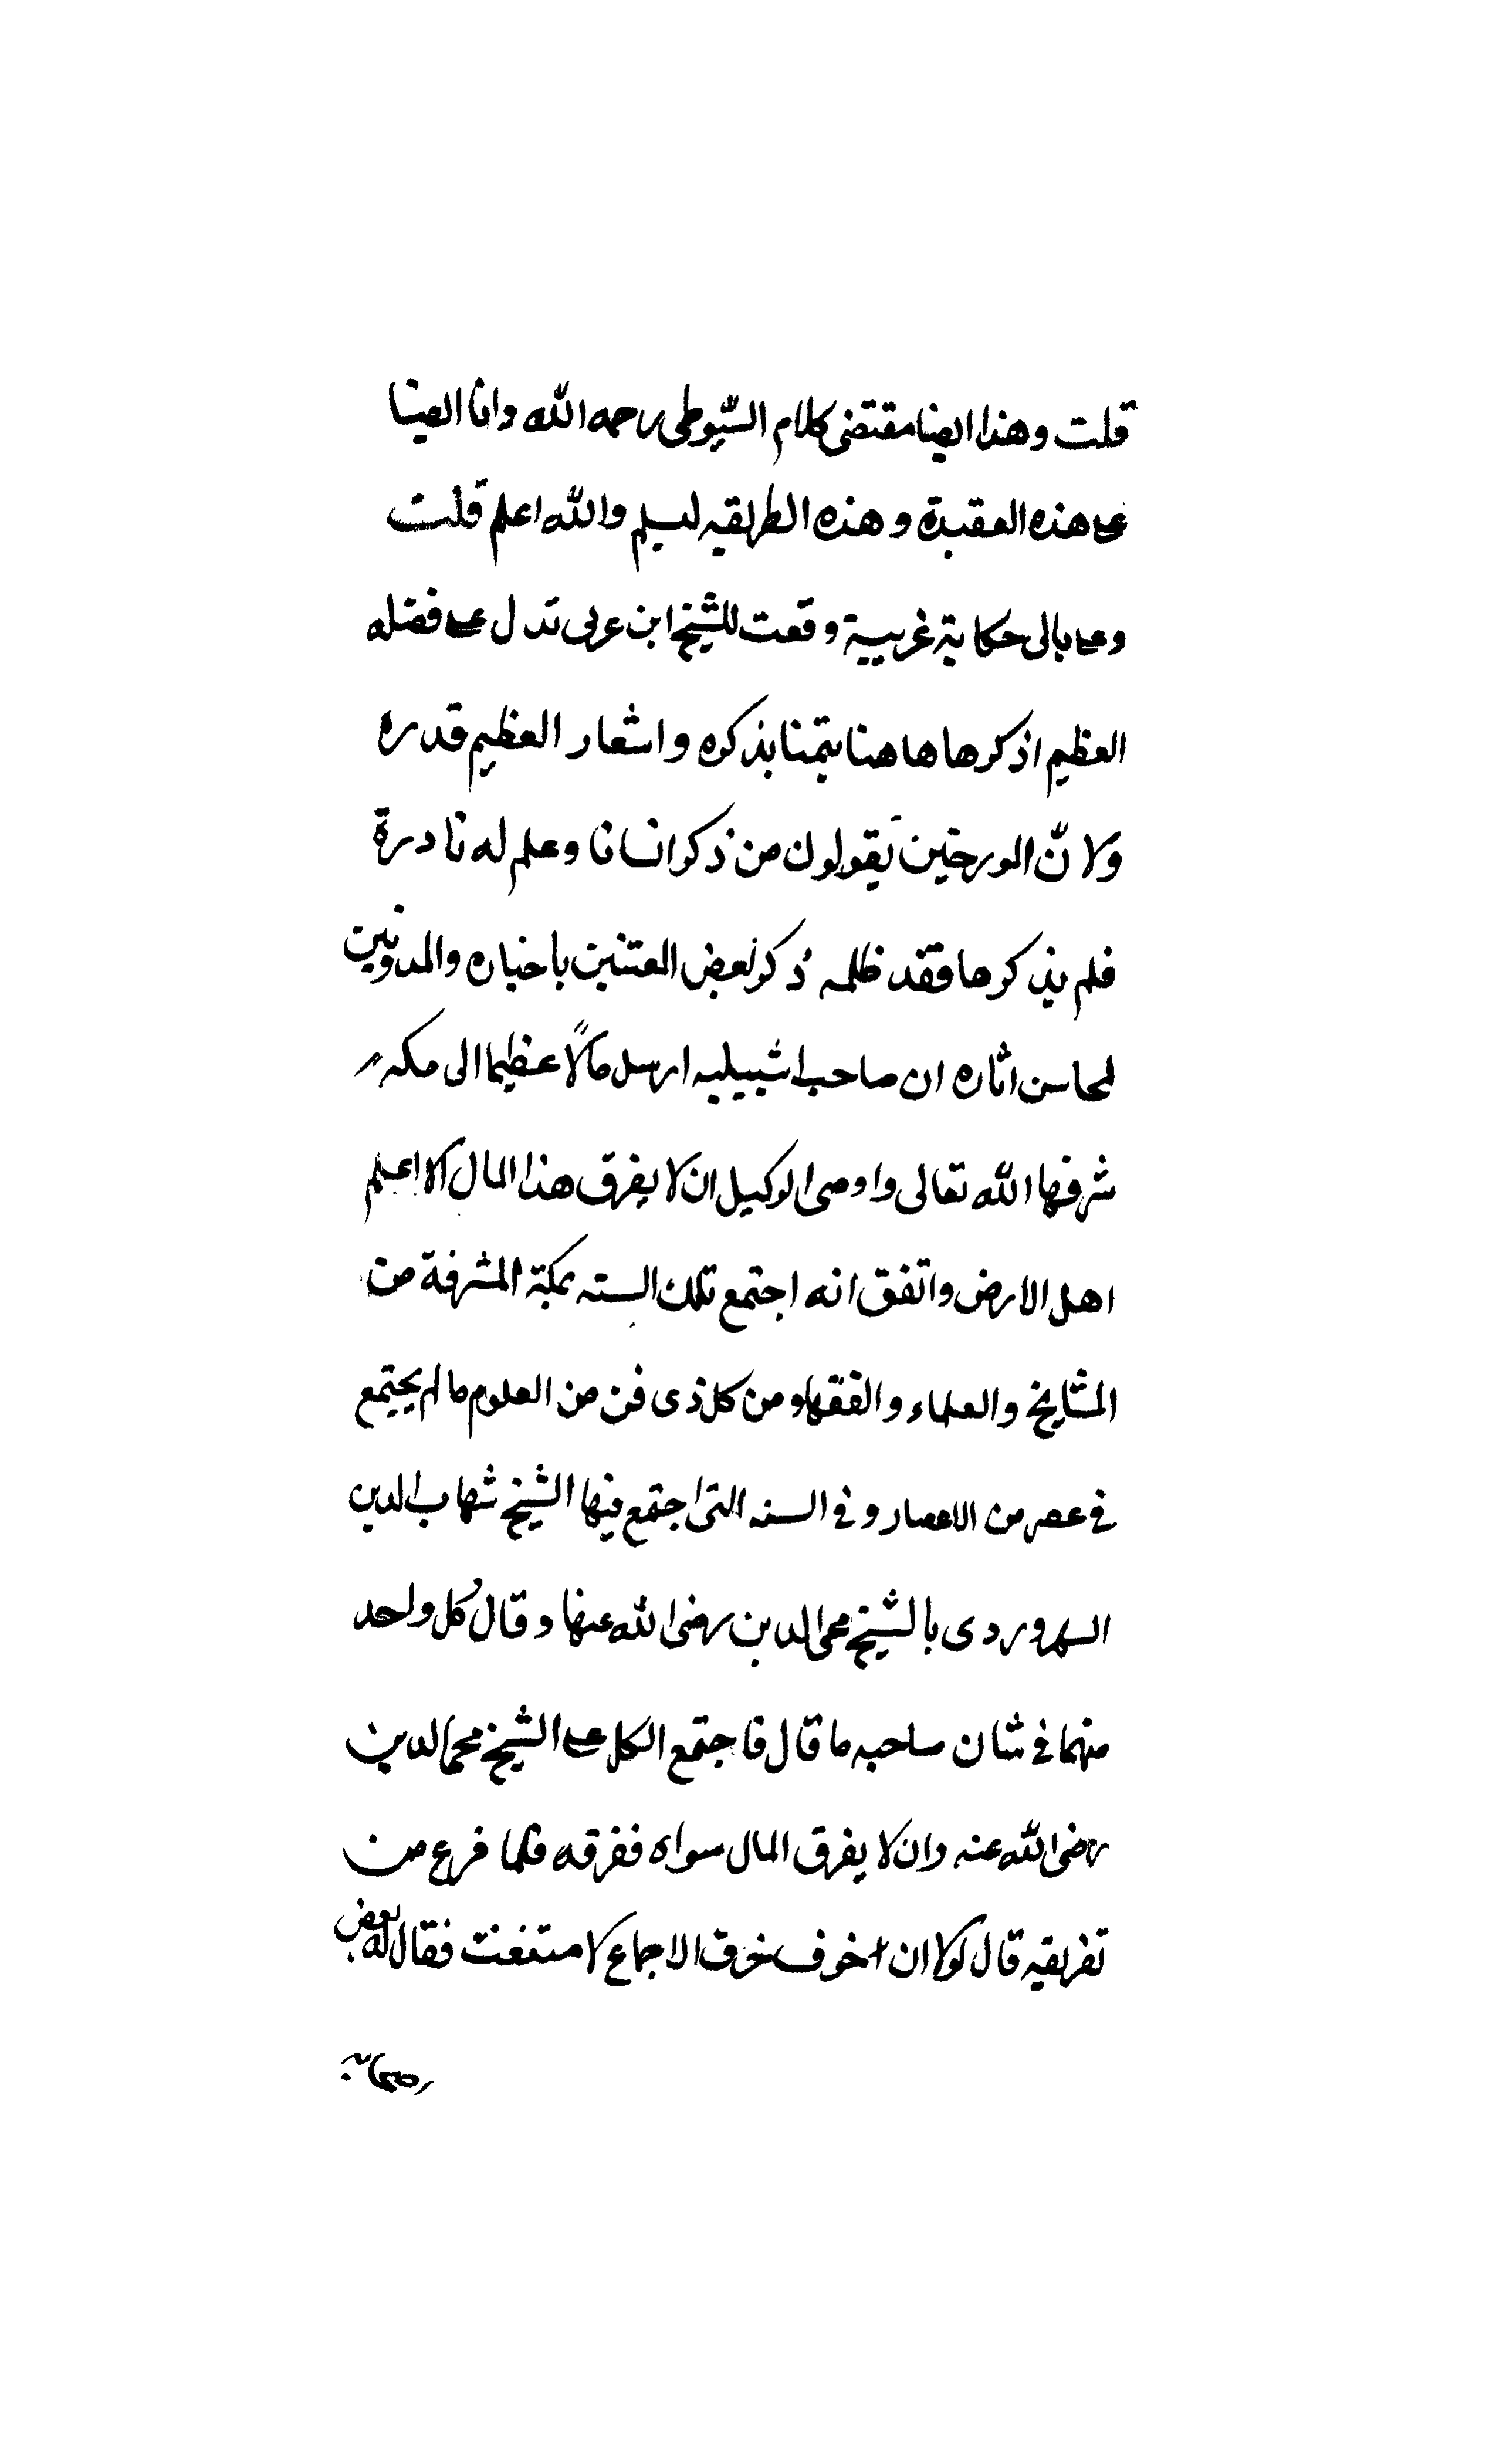 قلت وهذا ايضا مقتضى كلام السّيوطى رحمه الله وانا ايضا
على هذه العقيدة وهذه الطريقه ليسلم والله اعلم قلت
وعلى بالى حكاية غريبية وقعت للشيخ ابن عربى تدل على فضله
العظيم اذكرها هاهنا يتمنا بذكره واشعار العظيم قدره
ولانّ المورخين يَقولون من ذكر انسانا وعلم له نادرة
فلم يذكرها فقد ظلمه ذكر بعض المعتنين باخباره والمدونين
لمحاسن اثاره ان صاحب اشبيليه ارسل مالًا عظيما الى مكه
شرفها الله تعالى واوصى الوكيل ان لا يفرق هذا المال الا اعلم
اهل الارض واتفق انه اجتمع تلك السنه بمكة المشرفة من
المشايخ والعلماء والفقهاء ومن كل ذى فن من العلوم ما لم يجتمع
فى عصر من الاعصار وفى السنه التى اجتمع فيها الشيخ شهاب الدين
السهروردى بالشيخ محى الدين رضى الله عنها وقال كُل واحد
منهما فى شان صاحبه ما قال فاجتمع الكل على الشيخ محى الدين
رضى الله عنه وان لا يفرق المال سواه ففرقه فلما فرع من
تفريقه قال لولا ان اخوف خرق الاجماع لامتنعت فقال له بعض